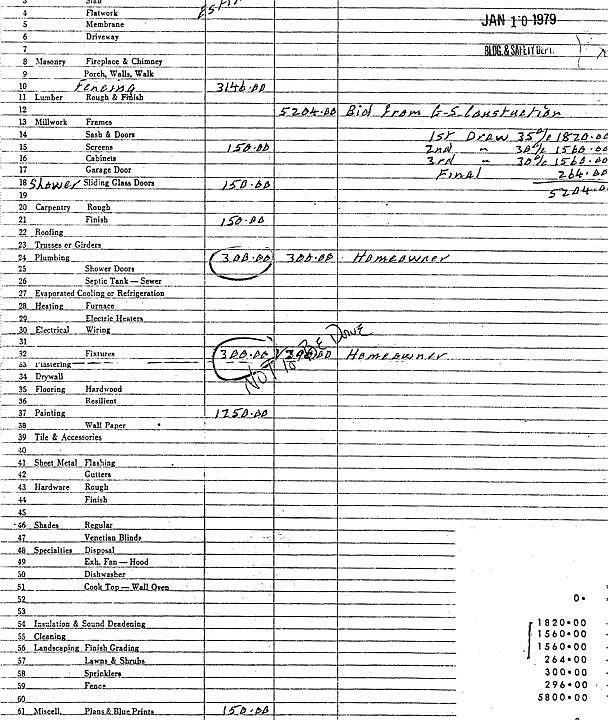 3 Slab
4 Flatwork
5 Membrane
6 Driveway
JAN 10 1979
BLDG. & SAFETY DEPT.
7
8 Masonry Fireplace & Chimney
9 Porch, Walls, Walk
10 Fencing 3146.00
11 Lumber Rough & Finish
12 5204.00 Bid from G-S Constuction
13 Millwork Frames
14 Sash & Doors 1st Draw 35% 1820.00
15 Screens 150.00 2nd " 30% 1560.00
16 Cabinets 3rd " 30% 1560.00
17 Garage Door Final 264.00
18 Shower Sliding Glass Doors 150.00
19 5204.00
20 Carpentry Rough
21 Finish 150.00
22 Roofing
23 Trusses or Girders
24 Plumbing 300.00 300.00 Homeowner
25 Shower Doors
26 Septic Tank — Sewer
27 Evaporated Cooling or Refrigeration
28 Heating Furnace
29 Electric Heaters
30 Electrical Wiring
31
32 Fixtures 300.00 296.00 Homeowner
NOT TO BE DONE
33 Plastering
34 Drywall
35 Flooring Hardwood
36 Resilient
37 Painting 1250.00
38 Wall Paper
39 Tile & Accessories
40
41 Sheet Metal Flashing
42 Gutters
43 Hardware Rough
44 Finish
45
46 Shades Regular
47 Venetian Blinds
48 Specialties Disposal
49 Exh. Fan — Hood
50 Dishwasher
51 Cook Top — Wall Oven
52
53
54 Insulation & Sound Deadening
55 Cleaning
56 Landscaping Finish Grading
57 Lawns & Shrubs
58 Sprinklers
59 Fence
60
61 Miscell. Plans & Blue Prints 150.00
0.
1820.00
1560.00
1560.00
264.00
300.00
296.00
5800.00